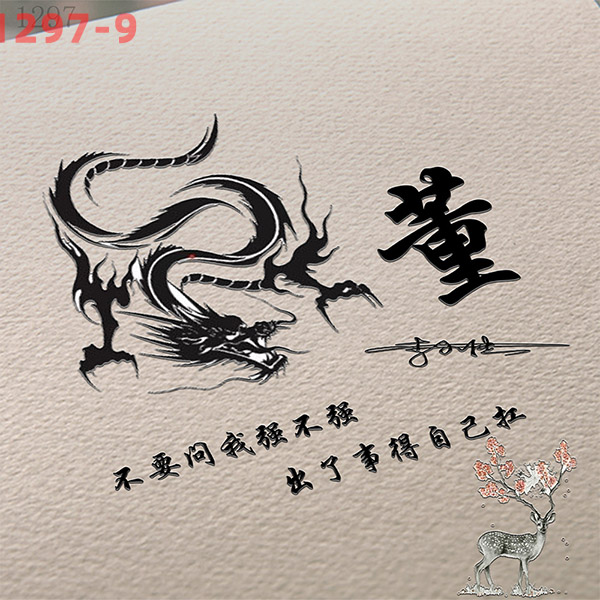 1297
1297-9
董
不要问我强不强
出了事得自己扛